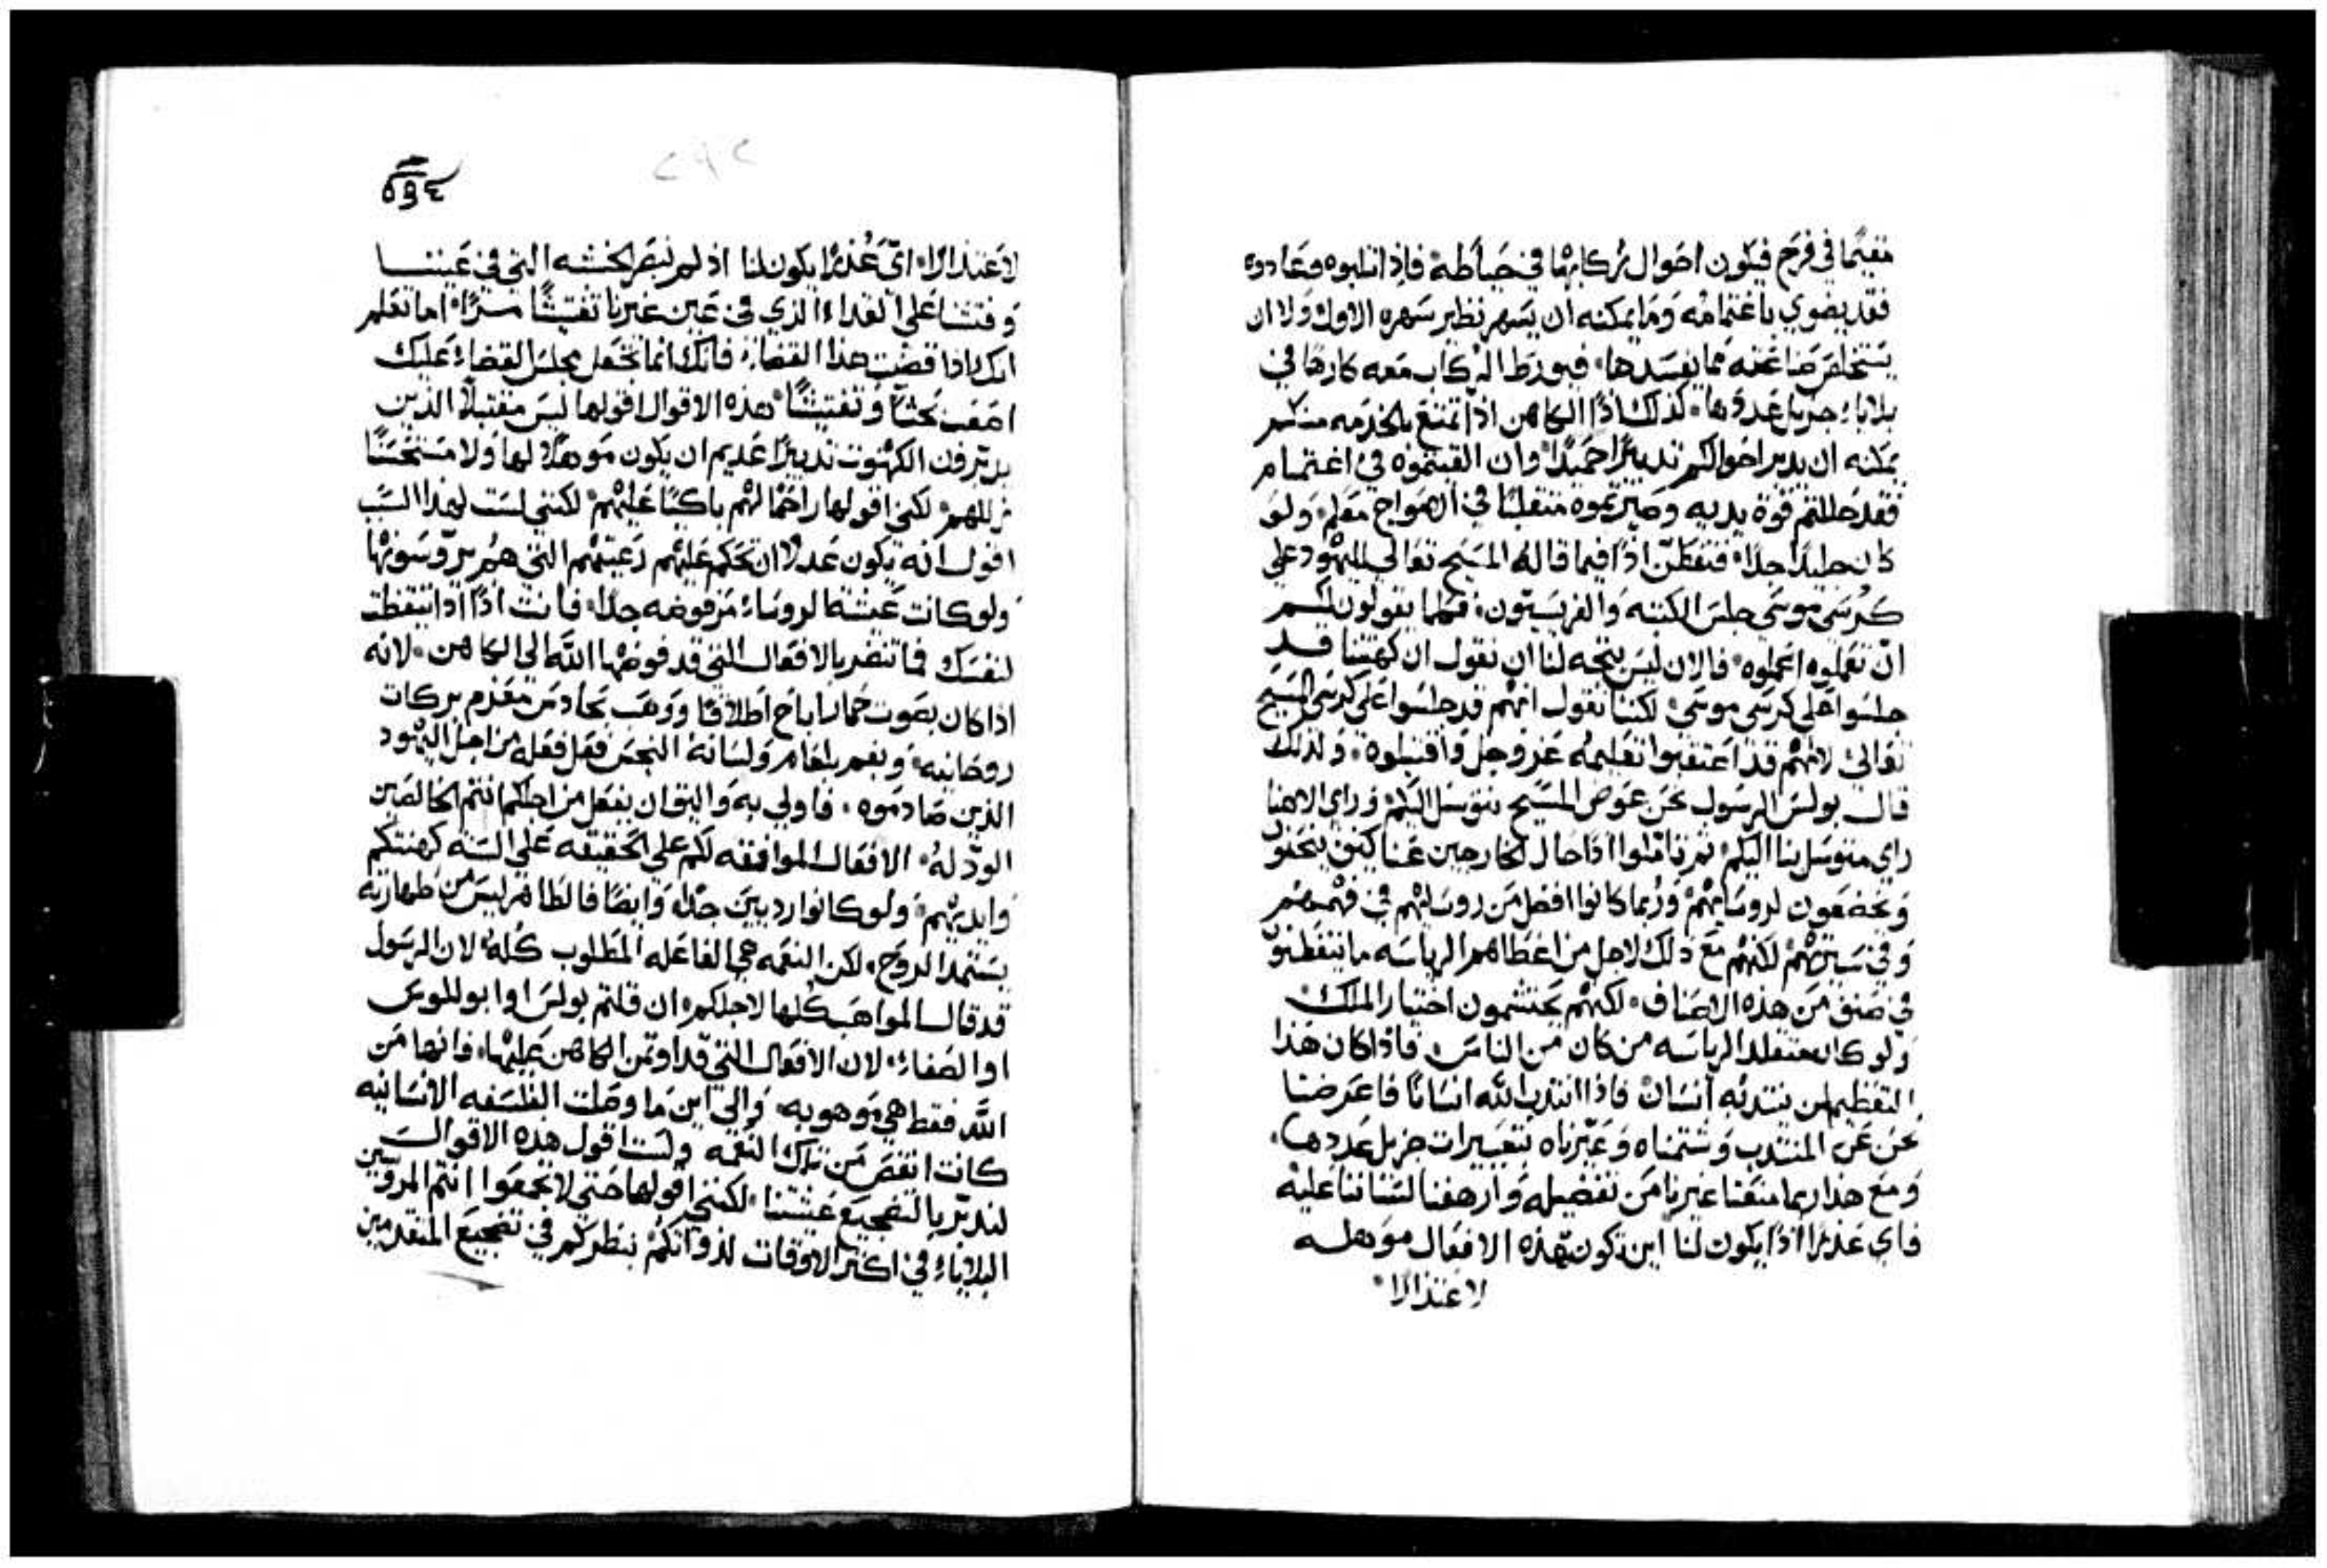 مقيمًا في فرح فيكون احوال ركابها في حياطة فاذا اثلبوه وعادوه
فقد يضوي باغتمامه وما يمكنه ان يسهر نظير سهره الاول ولا ان
يستخلص صناعته مما يفسدها فيورط الركاب معه كارها في
بلايا جزيل عددها كذلك اذًا الكاهن اذا تمتع بالخدمه منكم
يمكنه ان يدبر احوالكم تدبيرًا حميدًا وان القيتموه في اغتمام
فقد حللتم قوة يديه وصيرتموه متقلبًا في الامواج معكم ولو
كان جليدًا جدًا فتفطن اذًا فيما قاله المسيح تعالي لليهود علي
كرسي موسي جلس الكتبه والفريسيون فمهما يقولون لكم
ان تعملوه اعملوه فالان ليس يتجه لنا ان نقول ان كهنتنا قد
جلسوا علي كرسي موسي لكننا نقول انهم قد جلسوا علي كرسي المسيح
تعالي لانهم قد اعتقبوا تعليمه عز وجل واقتبلوه ولذلك
قال بولس الرسول نحن عوض المسيح نتوسل اليكم وراي الاهنا
راي متوسل بنا اليكم ثم تاملوا اذًا حال الخارجين عنا كيف ينحنون
ويخضعون لروسايهم وربما كانوا افضل من روسايهم في فهمهم
وفي سيرتهم لكنهم مع ذلك لاجل من اعطاهم الرياسه ما يتفطنون
في صنف من هذه الاصناف لكنهم يحتشمون اختيار الملك
ولو كان متقلد الرياسه من كان من الناس فاذا كان هذا
التعظيم لمن ينتدبه انسان فاذا انتدب الله انسانًا فاعرضنا
نحن عن المنتدب وشتمناه وعيرناه بتعييرات جزيل عددها
ومع هذا ربما منعنا غيرنا من تفضيله وارهفنا لسناتنا عليه
فاي عذرًا اذًا يكون لنا اين تكون هذه الافعال موهله
لاعتذارًا
٥٩٤
٢٩٢
لاعتذارًا اي عذرًا يكون لنا اذ لم نبصر الخشبه التي في عيننا
وفتشنا علي القداء الذي في عين غيرنا تفتيشًا مرًا اما تعلم
انك اذا قضيت هذا القضاء فانك انما تجعل مجلس القضاء عليك
اصعب بحثًا وتفتيشًا هذه الاقوال اقولها ليس مقتبلاً الذين
يدبرون الكهنوت تدبيرًا عديم ان يكون موهلاً لها ولا مستحسنًا
لكني اقولها راحمًا لهم باكيًا عليهم لكنني لست لهذا السبب
اقول انه يكون عدلاً ان تحكم عليهم رعيتهم التي هم يروسونها
ولو كانت عيشة الروساء مرفوضه جدًا فانت اذًا اذا تيقظت
لنفسك فما تنضر بالافعال التي قد فوضها الله الي الكاهن لانه
اذا كان بصوت حمار اباح اطلاقًا ووهب بحادس مقدم بركات
روحانيه وبفم بلعام ولسانه النجس فعل فعله من اجل اليهود
الذين صادموه فاولي به واليق ان يفعل من اجلكم انتم الخالصين
الود له الافعال الموافقه لكم علي الحقيقه علي السنه كهنتكم
وايديهم ولو كانوا رديين جدًا وايضًا فالطاهر ليس من طهارته
يستمد الروح لكن النعمه هي الفاعله المطلوب كله لان الرسول
قد قال المواهب كلها لاجلكم ان قلتم بولس او ابوللوس
او الصفا لان الافعال التي قد اوتمن الكاهن عليها فانها من
الله فقط هي موهوبه والي اين ما وصلت الفلسفه الانسانيه
كانت انقص من تلك النعمه ولست اقول هذه الاقوال
لندبر بالتضجيع عيشتنا لكنني اقولها حتي لا تجمعوا انتم المروسين
البلايا في اكثر الاوقات لذواتكم بنظركم في تضجيع المتقدمين